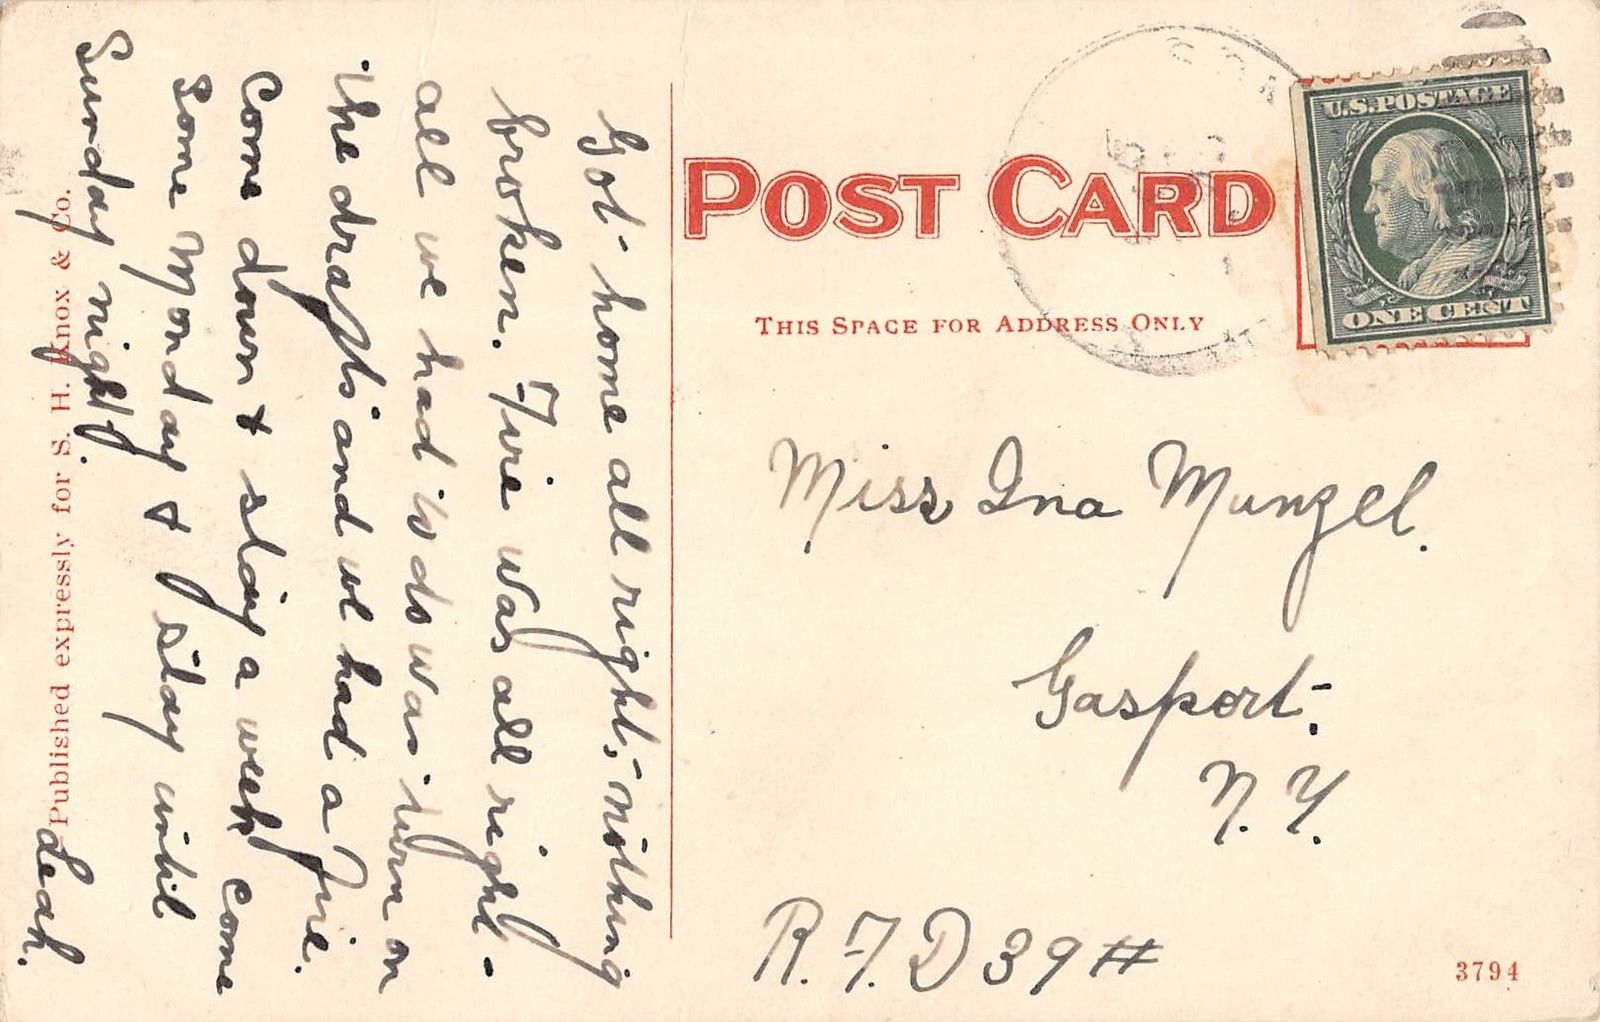 Got home all right, nothing
broken. Fire was all right -
all we had to do was turn on
the drafts and we had a fire.
Come down & stay a week come
some Monday & stay until
Sunday night.
Leah.
Published expressly for S. H. Knox & Co.
POST CARD
THIS SPACE FOR ADDRESS ONLY
U.S. POSTAGE
ONE CENT
Miss Ina Munzel.
Gasport.
N. Y.
R. F. D 39 #
3794